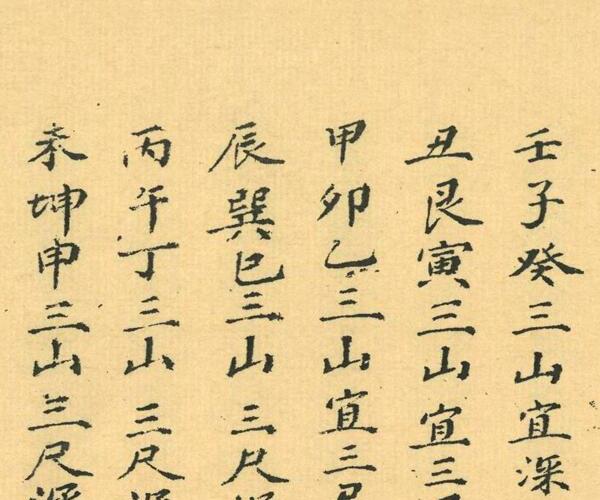 壬子癸三山宜深
丑艮寅三山宜三
甲卯乙三山宜三尺
辰巽巳三山三尺深
丙午丁三山三尺深
未坤申三山三尺深